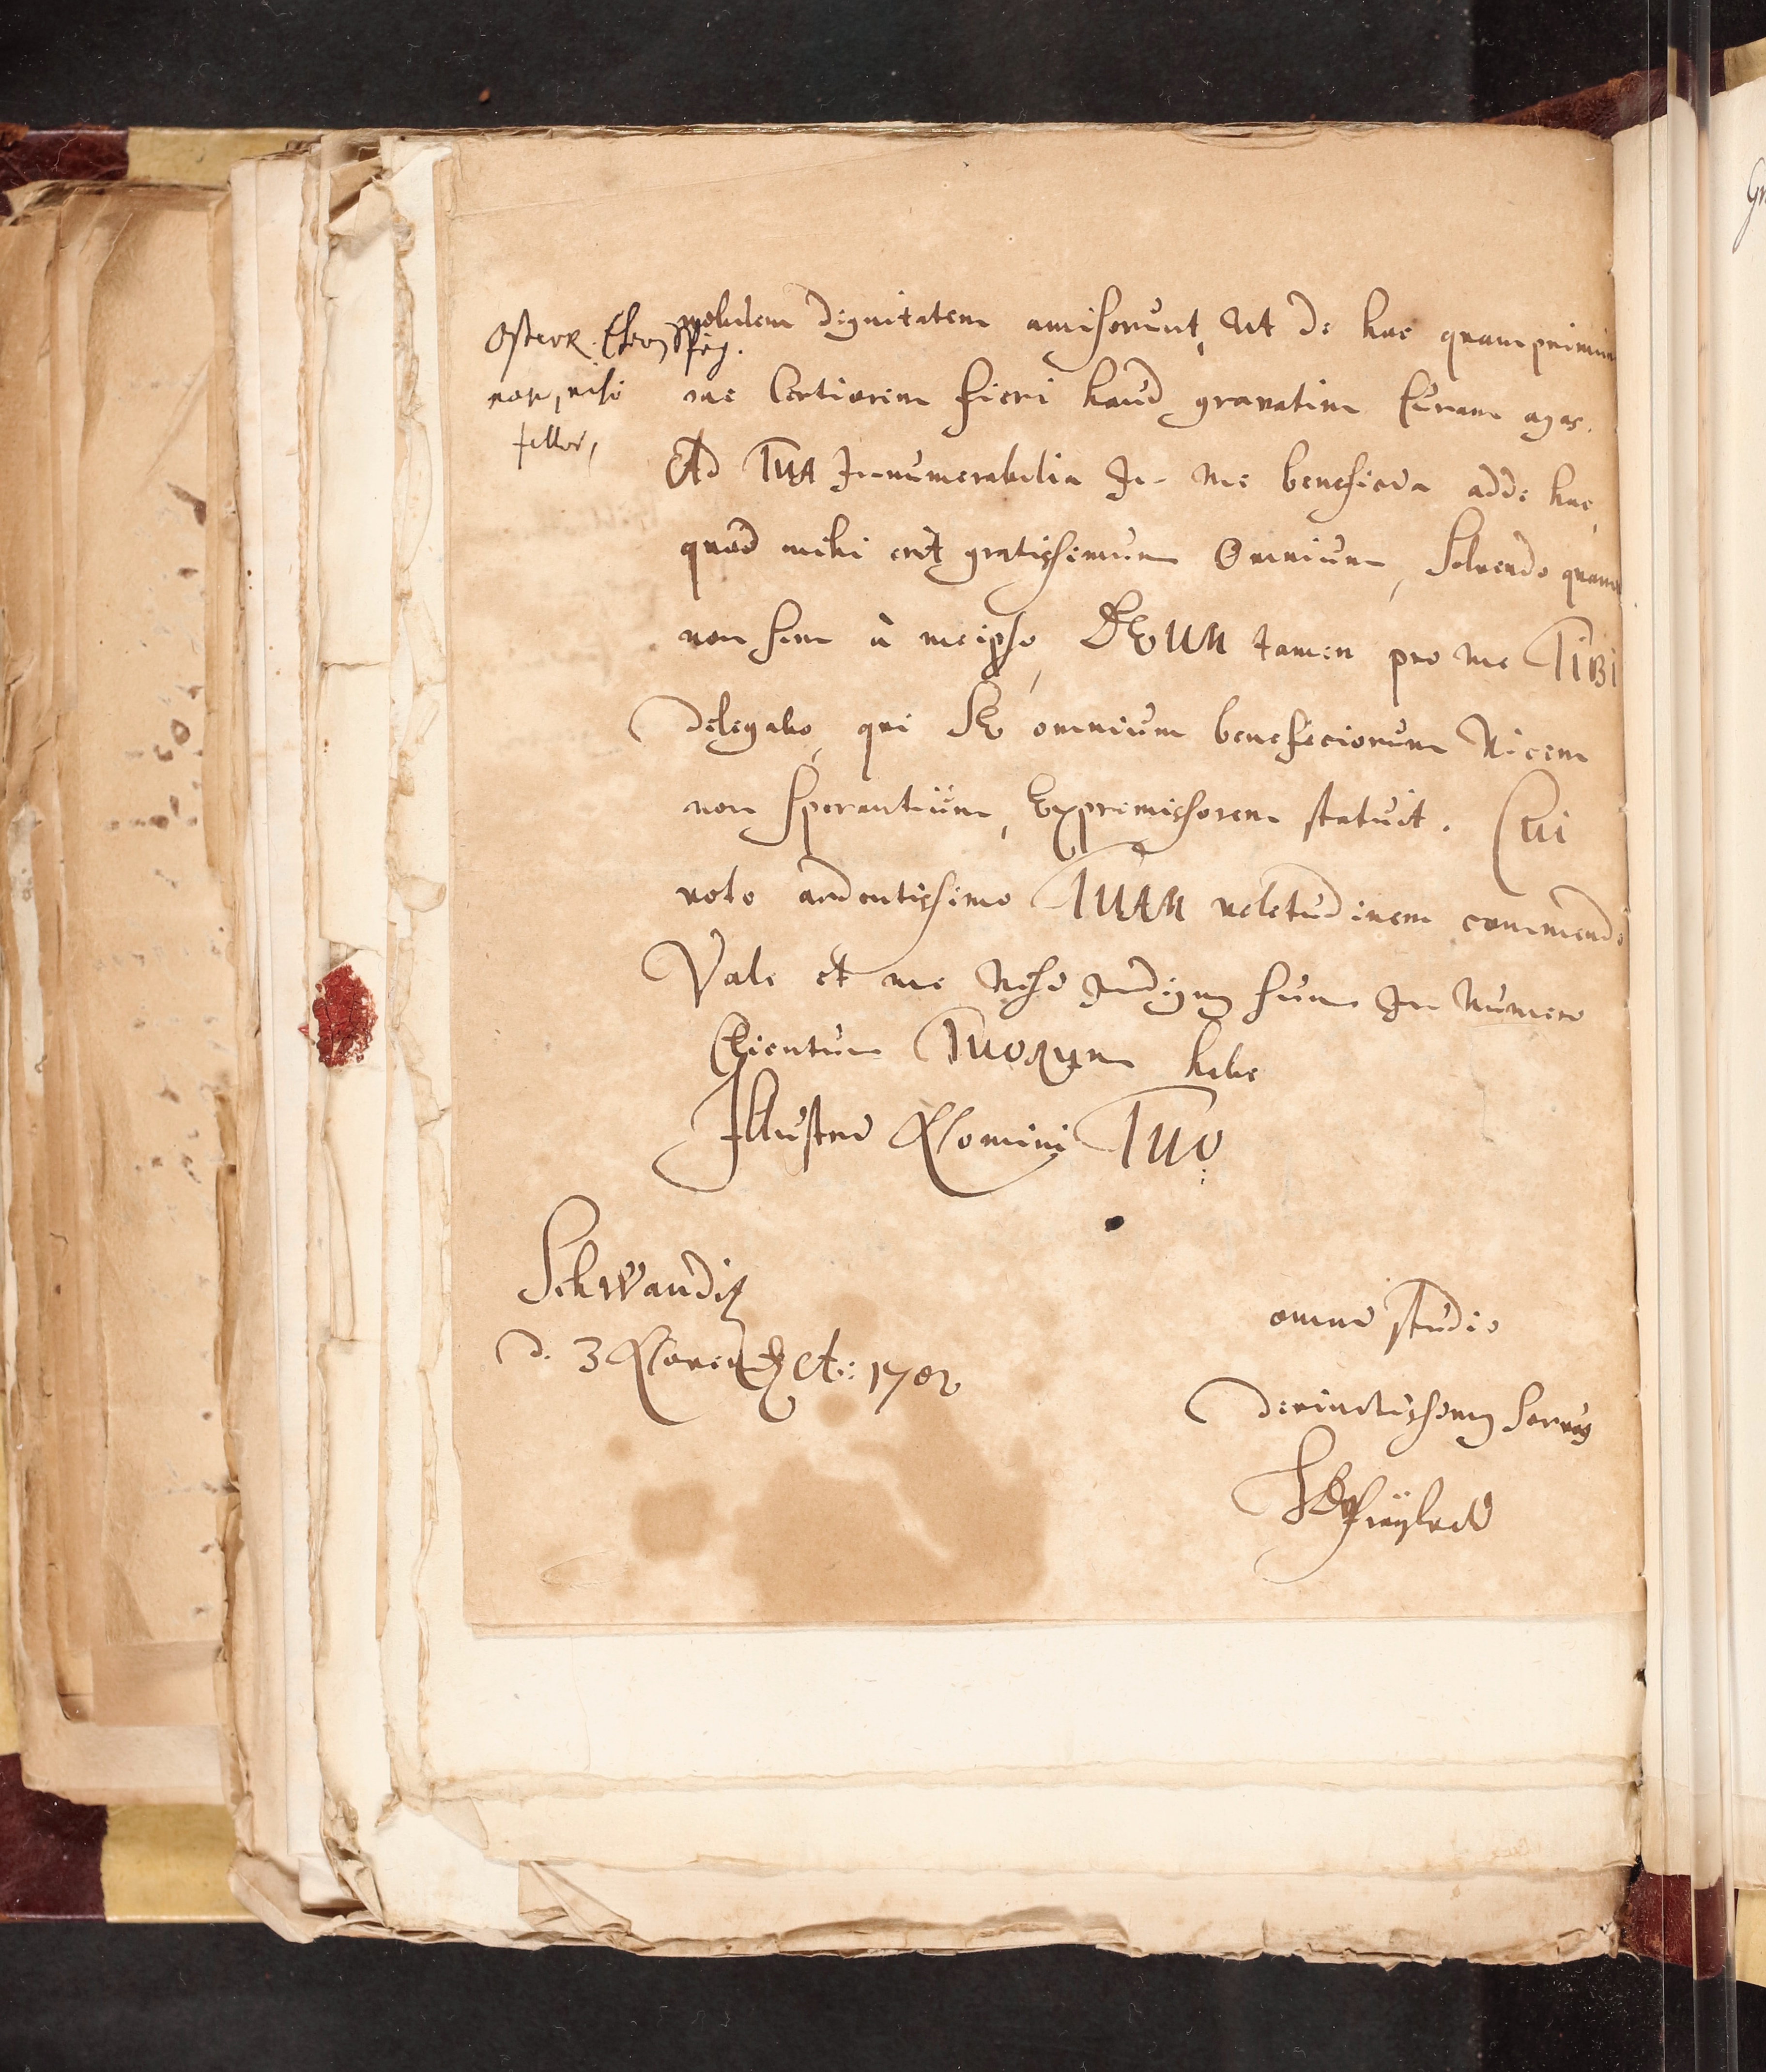 nobilem dignitatem amiserunt, ut de hac quamprimum
me certiorem fieri haud gravatim curam agas.
Ad TUA Innumerabilia In me beneficia adde hac,
quod mihi erit gratissimum Omnium, Solvendo quam
non sim à meipso, DEUM tamen pro me TIBI
delegabo, qui SE omnium beneficiorum vicem
non sperantium, Expromissorem statuit. Cui
voto ardentissimo TUAM valetudinem commendo
Vale et me nisi Indignus sum In numero
Clientum TUORUM habe
Illustri Nomini TUO
Schwandis
d. 3 Novemb A: 1702
omni studio
devinctissimus servus